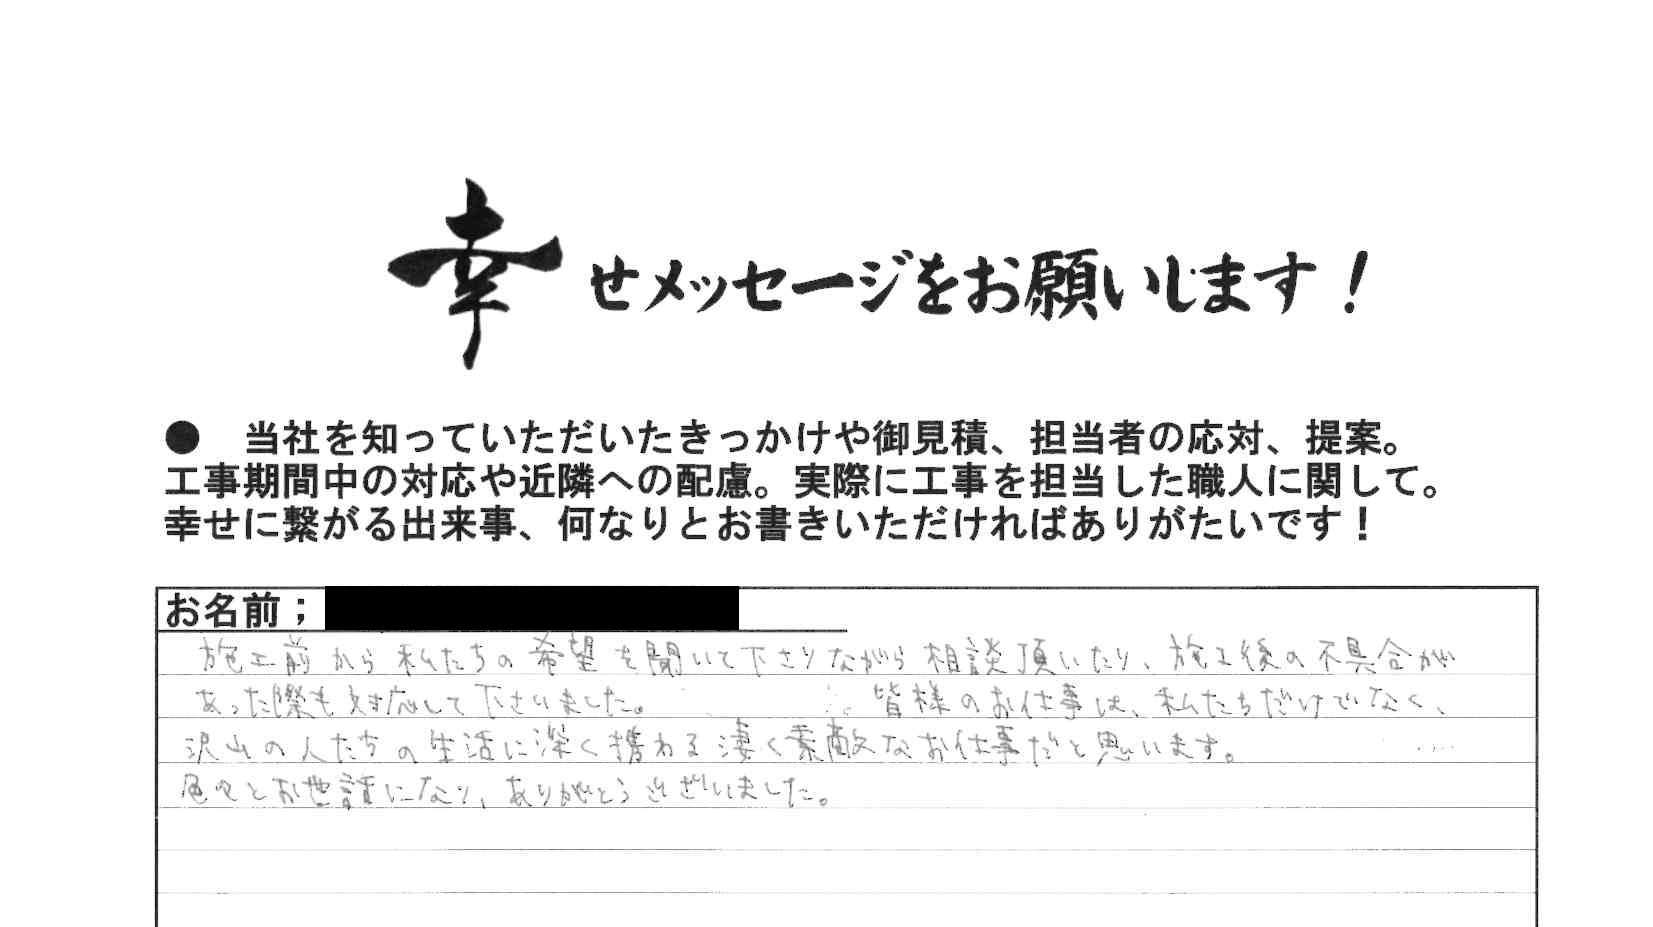 幸せメッセージをお願いします！
●　当社を知っていただいたきっかけや御見積、担当者の応対、提案。
工事期間中の対応や近隣への配慮。実際に工事を担当した職人に関して。
幸せに繋がる出来事、何なりとお書きいただければありがたいです！
お名前；
施工前から私たちの希望を聞いて下さりながら相談頂いたり、施工後の不具合が
あった際も対応して下さいました。　皆様のお仕事は、私たちだけでなく、
沢山の人たちの生活に深く携わる凄く素敵なお仕事だと思います。
色々とお世話になり、ありがとうございました。